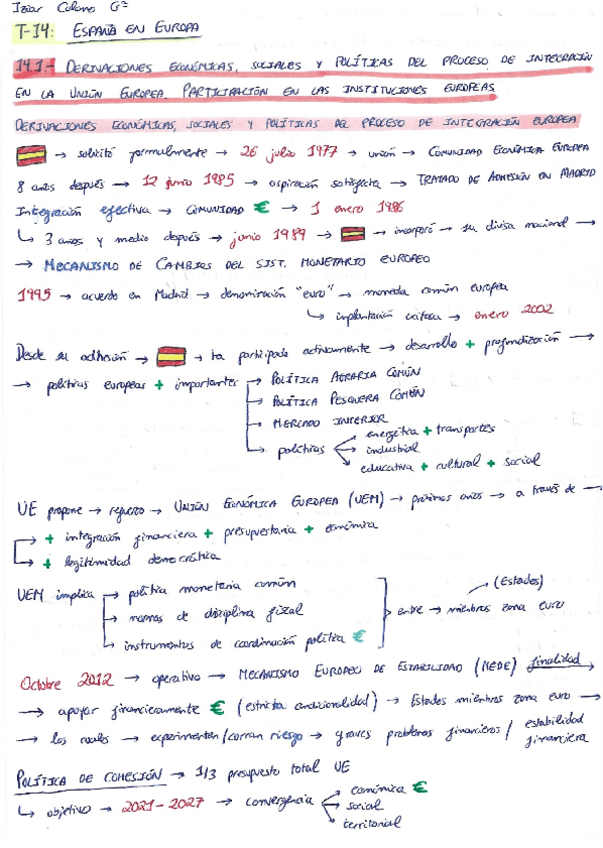 Iziar Colano Gª
T-14: ESPAÑA EN EUROPA
14.1.- DERIVACIONES ECONÓMICAS, SOCIALES Y POLÍTICAS DEL PROCESO DE INTEGRACIÓN
EN LA UNIÓN EUROPEA. PARTICIPACIÓN EN LAS INSTITUCIONES EUROPEAS
DERIVACIONES ECONÓMICAS, SOCIALES Y POLÍTICAS DEL PROCESO DE INTEGRACIÓN EUROPEA
→ solicitó formalmente → 26 julio 1977 → unión → COMUNIDAD ECONÓMICA EUROPEA
8 años después → 12 junio 1985 → aspiración satisfecha → TRATADO DE ADHESIÓN EN MADRID
Integración efectiva → COMUNIDAD € → 1 enero 1986
↳ 3 años y medio después → junio 1989 → → incorporó → su divisa nacional →
→ MECANISMO DE CAMBIOS DEL SIST. MONETARIO EUROPEO
1995 → acuerdo en Madrid → denominación "euro" → moneda común europea
↳ implantación exitosa → enero 2002
Desde su adhesión → → ha participado activamente → desarrollo + profundización →
→ políticas europeas + importantes → POLÍTICA AGRARIA COMÚN
→ POLÍTICA PESQUERA COMÚN
→ MERCADO INTERIOR
→ políticas energética + transportes
industrial
educativa + cultural + social
UE propone → refuerzo → UNIÓN ECONÓMICA EUROPEA (UEM) → próximos años → a través de →
→ + integración financiera + presupuestaria + económica
→ + legitimidad democrática
UEM implica → política monetaria común
→ normas de disciplina fiscal
→ instrumentos de coordinación política €
entre → miembros zona euro
(Estados)
Octubre 2012 → operativo → MECANISMO EUROPEO DE ESTABILIDAD (MEDE) finalidad
→ apoyar financieramente € (estricta condicionalidad) → Estados miembros zona euro →
→ los cuales → experimenten/corran riesgo → graves problemas financieros / estabilidad financiera
POLÍTICA DE COHESIÓN → 1/3 presupuesto total UE
↳ objetivo → 2021-2027 → convergencia económica €
social
territorial